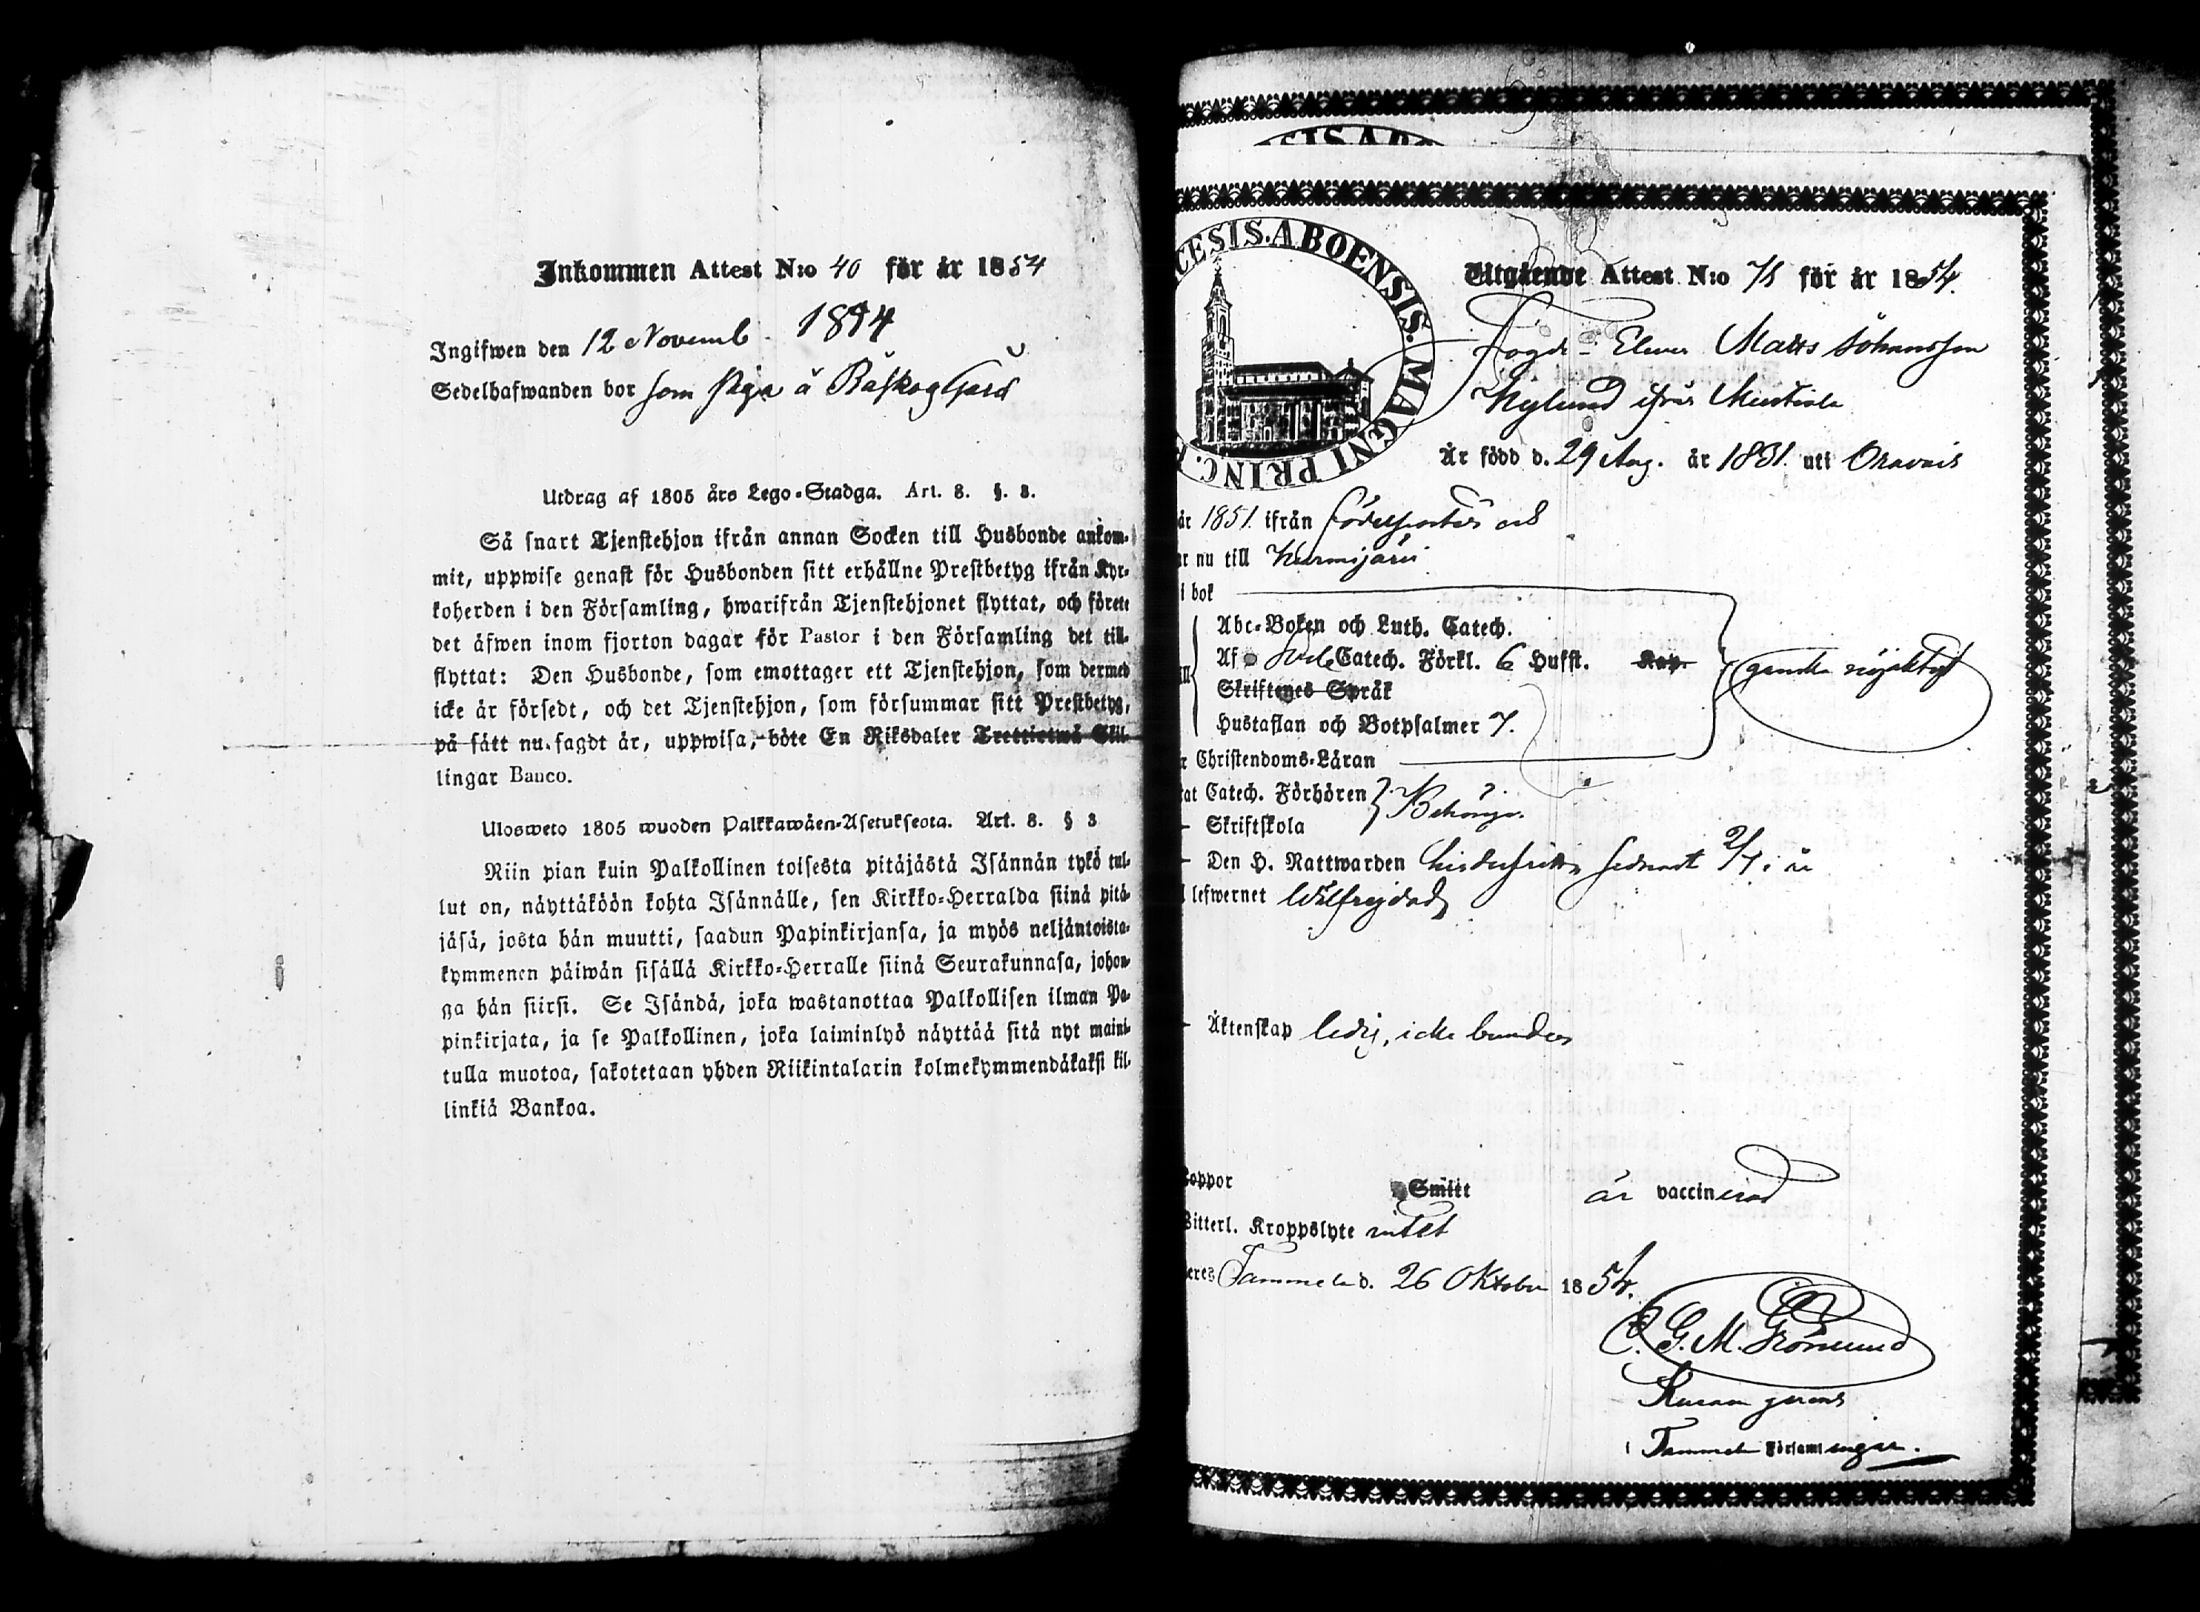 Inkommen Attest N:o 40 för år 1854
1854
Ingifwen den 12 Novemb.
Sedelhafwanden bor som Piga å Gård
Utdrag af 1805 års Lego-Stadga. Art. 8. §. 8.
Så snart Tjenstehjon ifrån annan Socken till Husbonde ankom-
mit, uppwise genast för Husbonden sitt erhållne Prestbetyg ifrån Kyr-
koherden i den Församling, hwarifrån Tjenstehjonet flyttat, och förete
det äfwen inom fjorton dagar för Pastor i den Församling det till-
flyttat: Den Husbonde, som emottager ett Tjenstehjon, som dermed
icke är försedt, och det Tjenstehjon, som försummar sitt Prestbetyg,
på sätt nu sagdt är, uppwisa, böte En Riksdaler Trettiotwå Skil-
lingar Banco.
Ulosweto 1805 wuoden Palkkawäen-Asetuksesta. Art. 8. § 8
Niin pian kuin Palkollinen toisesta pitäjästä Isännän tykö tul-
lut on, näyttäköön kohta Isännälle, sen Kirkko-Herralda siinä pitä-
jäsä, josta hän muutti, saadun Papinkirjansa, ja myös neljäntoista-
kymmenen päiwän sisällä Kirkko-Herralle siinä Seurakunnasa, johon-
ga hän siirsi. Se Isändä, joka wastanottaa Palkollisen ilman Pa-
pinkirjata, ja se Palkollinen, joka laiminlyö näyttää sitä nyt maini-
tulla muotoa, sakotetaan yhden Riikintalarin kolmekymmendäkaksi kil-
linkiä Bankoa.
SIS.ABO
CESIS.ABOENSIS.MAGNI PRINC.
Utgående Attest N:o 75 för år 1854.
Fogde-Elever Matts Johansson
Nylund ifrån Mustiala
Är född d. 29 Aug. år 1831. uti Oravais
år 1851. ifrån födelseorten och
nu till Nurmijärvi.
i bok
Abc-Boken och Luth. Catech.
Af Catech. Förkl. 6 Hufst. Kap.
Skriftenes Språk
ganska nöjaktigt
Hustaflan och Botpsalmer 7.
Christendoms-Läran
Catech. Förhören
Skriftskola
Behörigen
Den H. Nattwarden senast i år
lefwernet Wälfrejdad
Äktenskap ledig, icke bunden
Koppor Smitt är vaccinerad
Bitterl. Kroppslyte intet
Tammela d. 26 Oktober 1854.
C. G. M. Grönlund
gerens
i Tammela Församlingar.